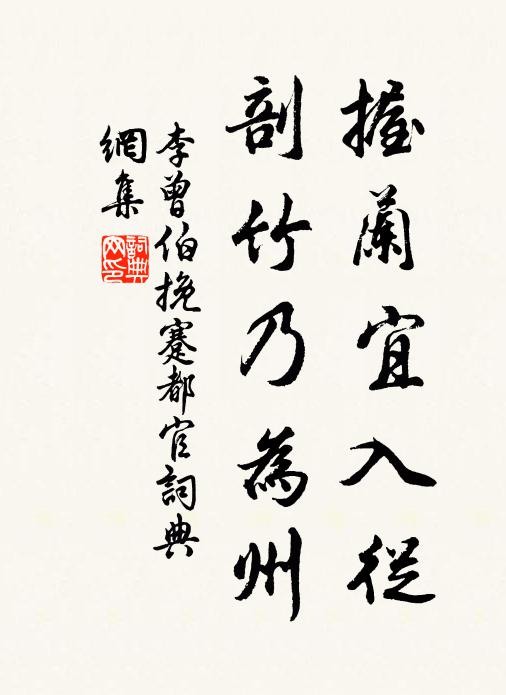 握蘭宜入從
剖竹乃為州
李曾伯挽蹇都官詞典
網集
詞典
网印